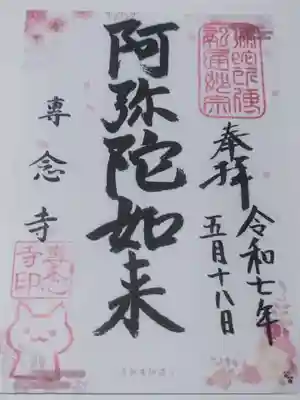 奉拝
令和七年
五月十八日
阿弥陀如来
専念寺
専念
寺印